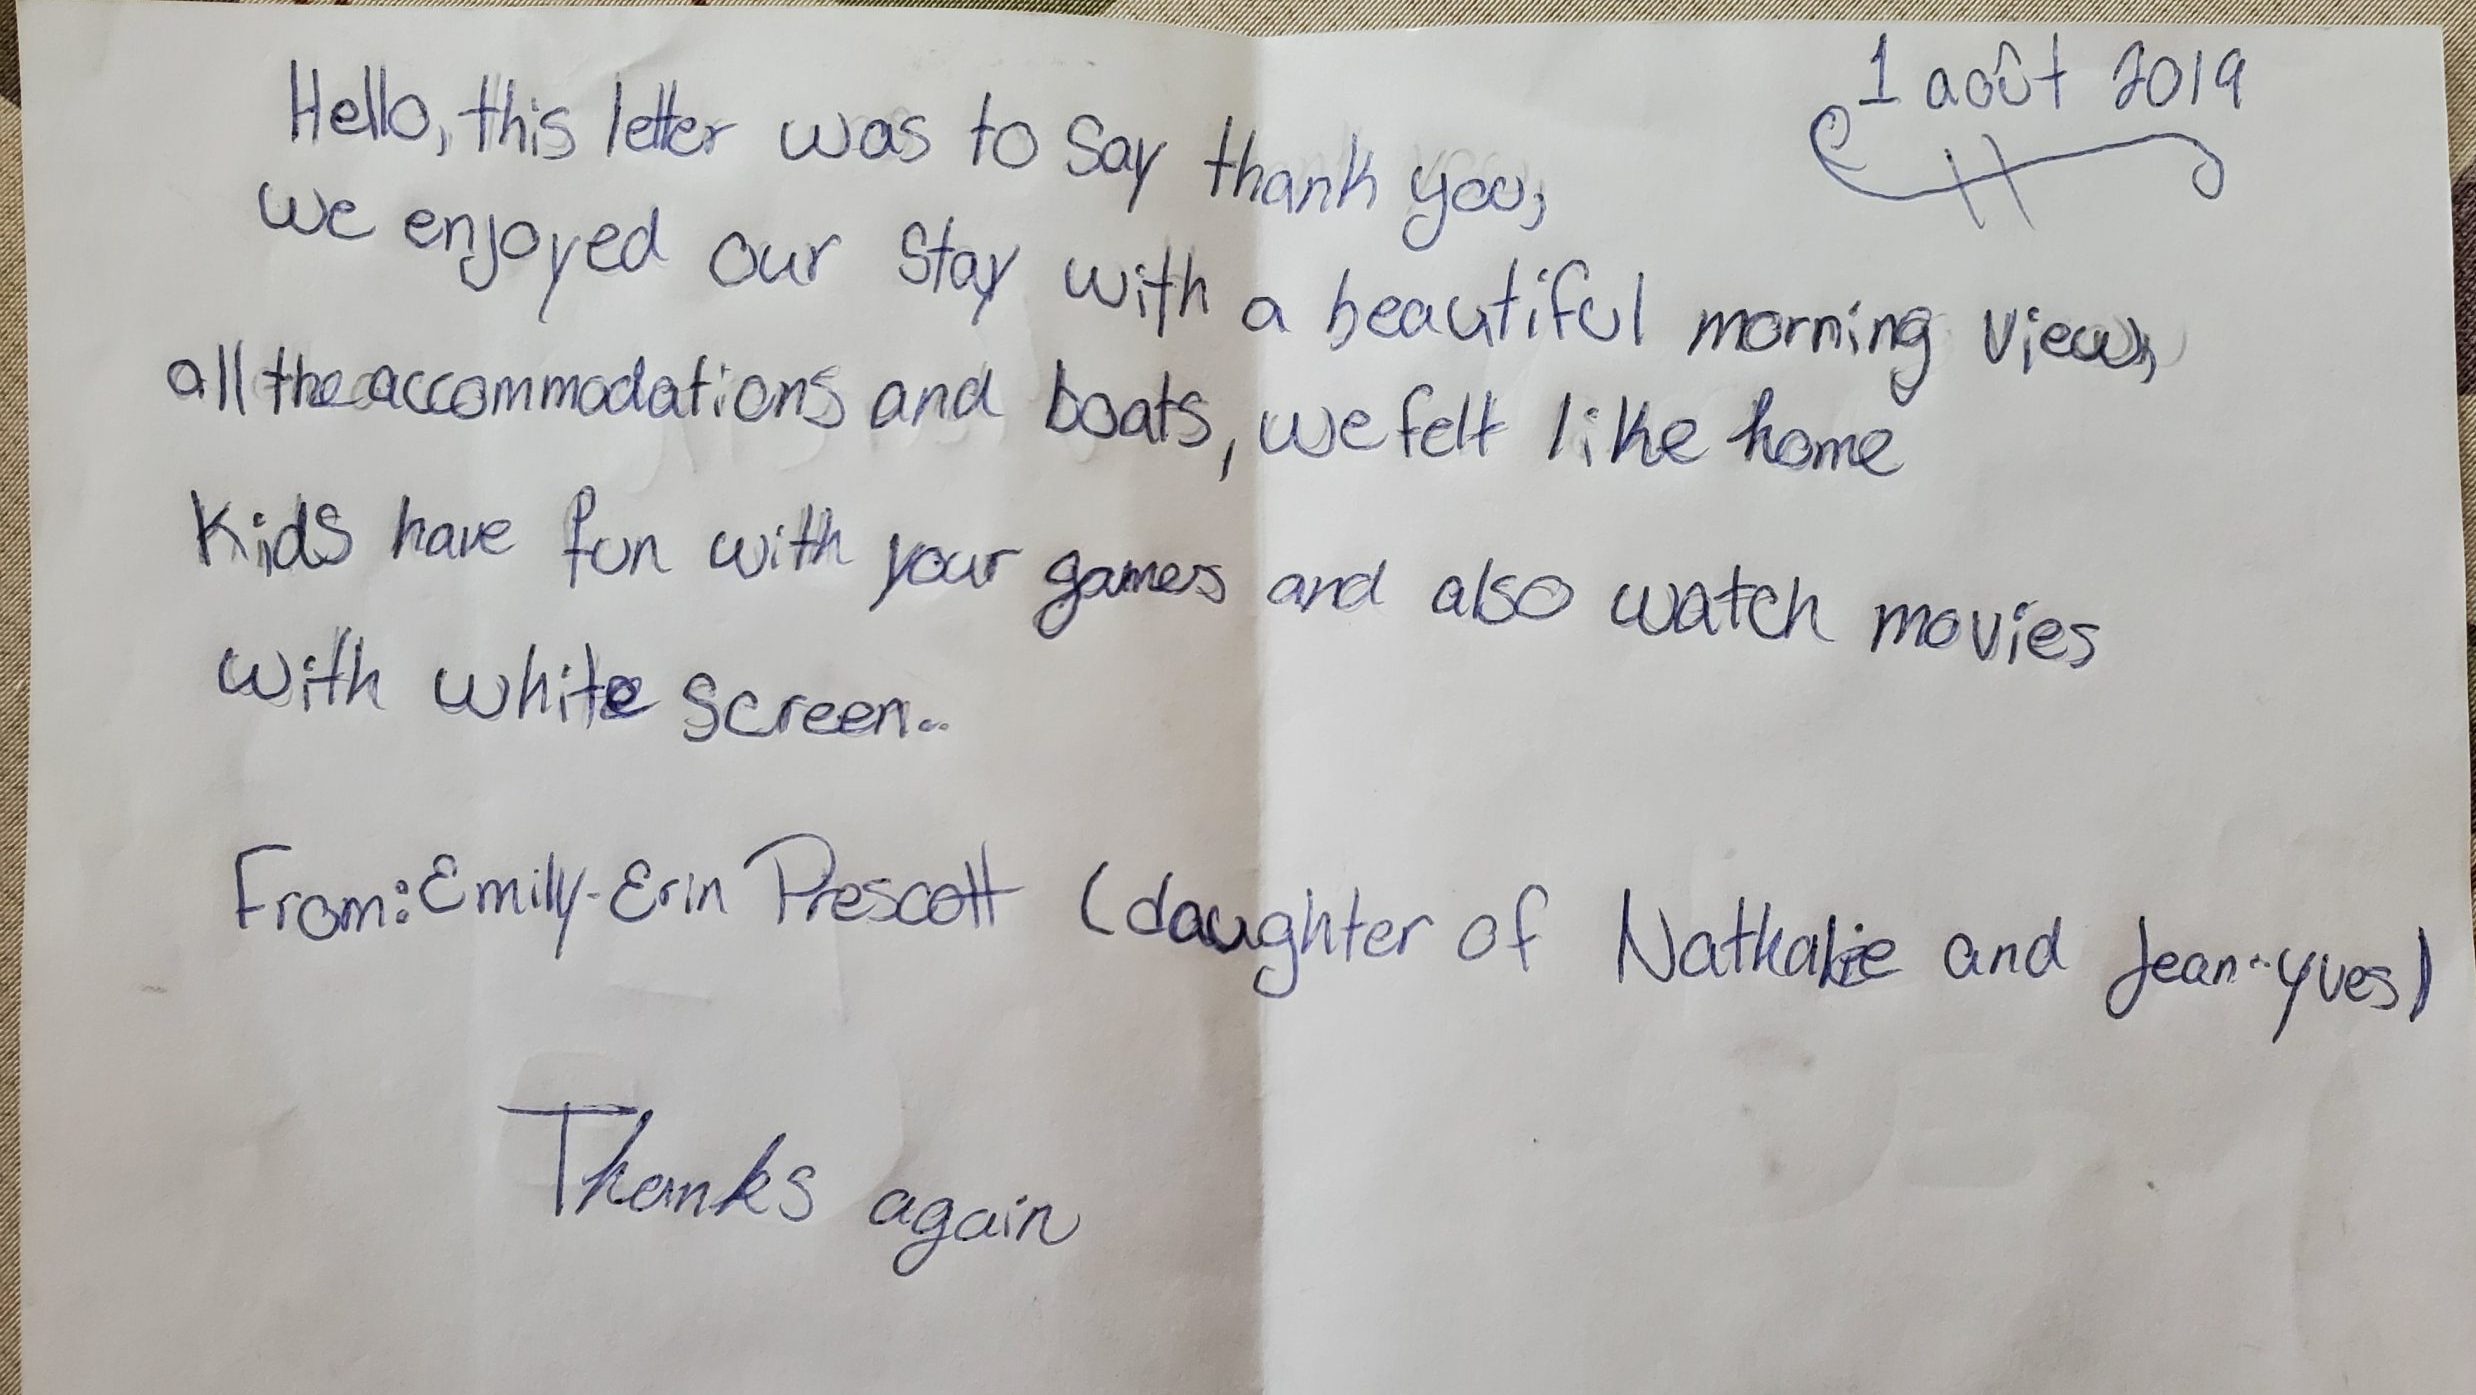 1 août 2019
Hello, this letter was to say thank you,
we enjoyed our stay with a beautiful morning view,
all the accommodations and boats, we felt like home
Kids have fun with your games and also watch movies
with white screen..
From: Emily-Erin Prescott (daughter of Nathalie and Jean-yves)
Thanks again